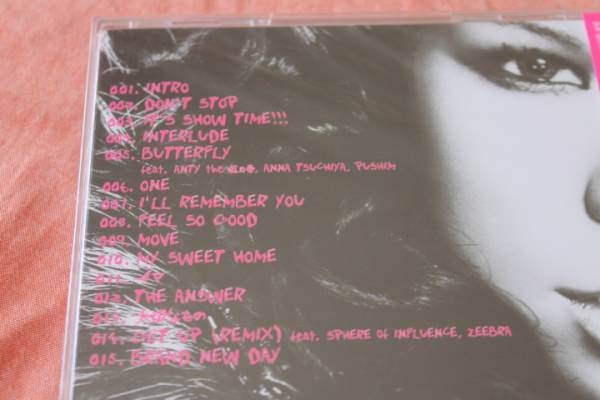 001. INTRO
002. DON'T STOP
003. IT'S SHOW TIME!!!
004. INTERLUDE
005. BUTTERFLY
feat. ANTY the 紅乃壱, ANNA TSUCHIYA, PUSHIM
006. ONE
007. I'LL REMEMBER YOU
008. FEEL SO GOOD
009. MOVE
010. MY SWEET HOME
011.
012. THE ANSWER
013. 大切なもの。
014. GET UP (REMIX) feat. SPHERE of INFLUENCE, ZEEBRA
015. BRAND NEW DAY